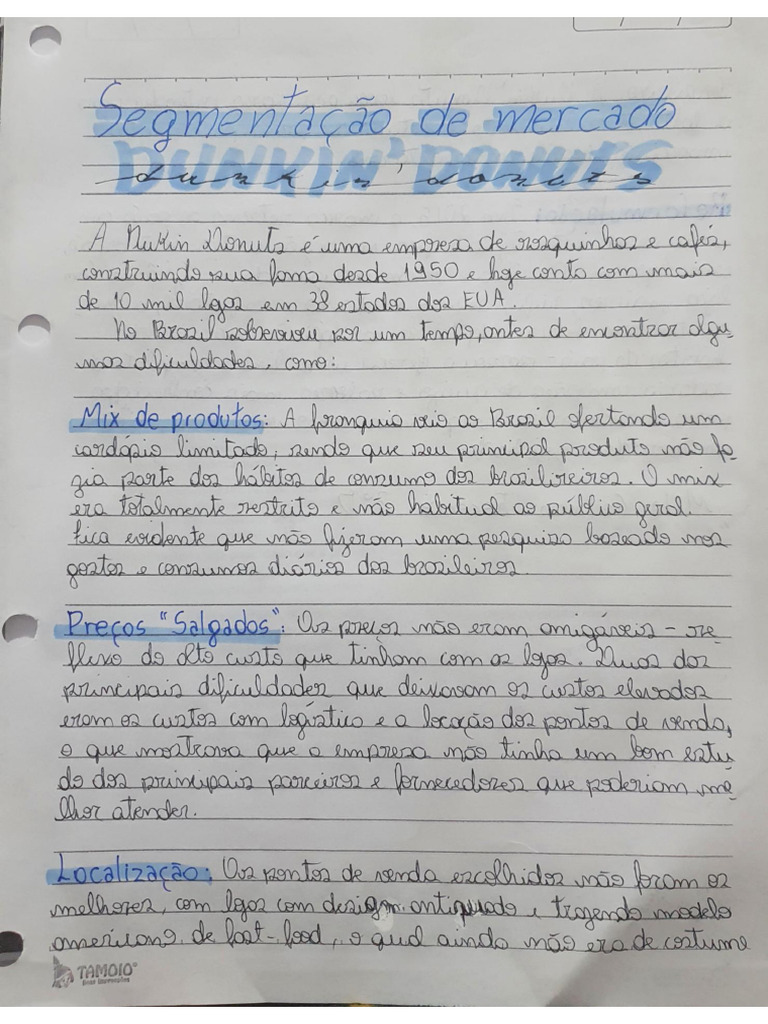 Segmentação de mercado
DUNKIN' DONUTS
dunkin' donuts
A Dukin Donuts é uma empresa de rosquinhas e cafés,
construindo sua fama desde 1950 e hoje conta com mais
de 10 mil lojas em 38 estados dos EUA.
No Brasil sobreviveu por um tempo, antes de encontrar algu-
mas dificuldades, como:
Mix de produtos: A franquia veio ao Brasil ofertando um
cardápio limitado, sendo que seu principal produto não fa-
zia parte dos hábitos de consumo dos brasilireiros. O mix
era totalmente restrito e não habitual ao público geral.
Fica evidente que não fizeram uma pesquisa baseada nos
gostos e consumos diários dos brasileiros.
Preços "Salgados": Os preços não eram amigáveis - re-
flexo do alto custo que tinham com as lojas. Duas das
principais dificuldades que deixavam os custos elevados
eram os custos com logística e a locação dos pontos de venda,
o que mostrava que a empresa não tinha um bom estu-
do dos principais parceiros e fornecedores que poderiam me-
lhor atender.
Localização: Os pontos de venda escolhidos não foram os
melhores, com lojas com design antiquado e trazendo modelo
americano de fast-food, o qual ainda não era de costume
TAMOIO